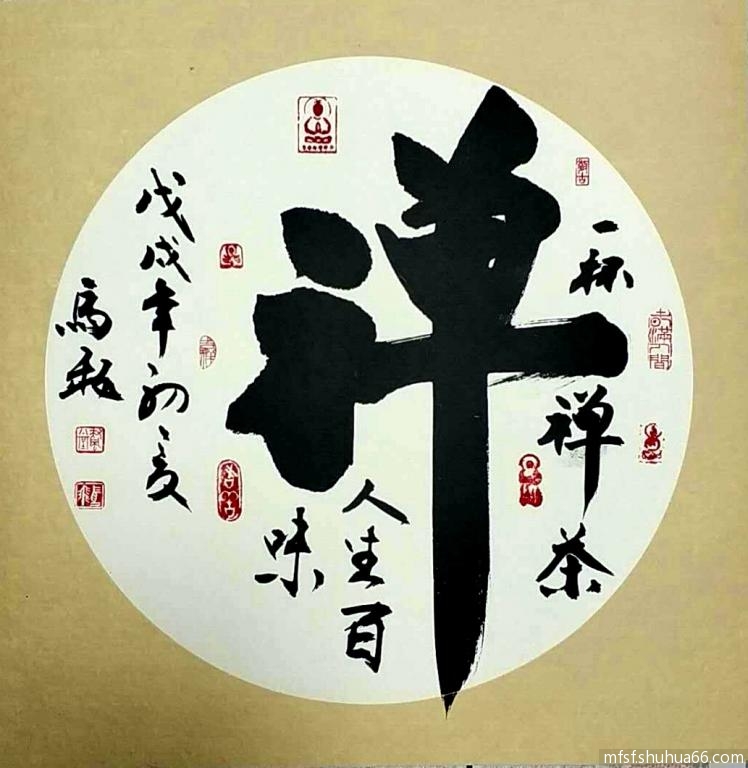 禅
一杯禅茶
人生百
味
戊戌年初夏
馬
mfsf.shuhua66.com